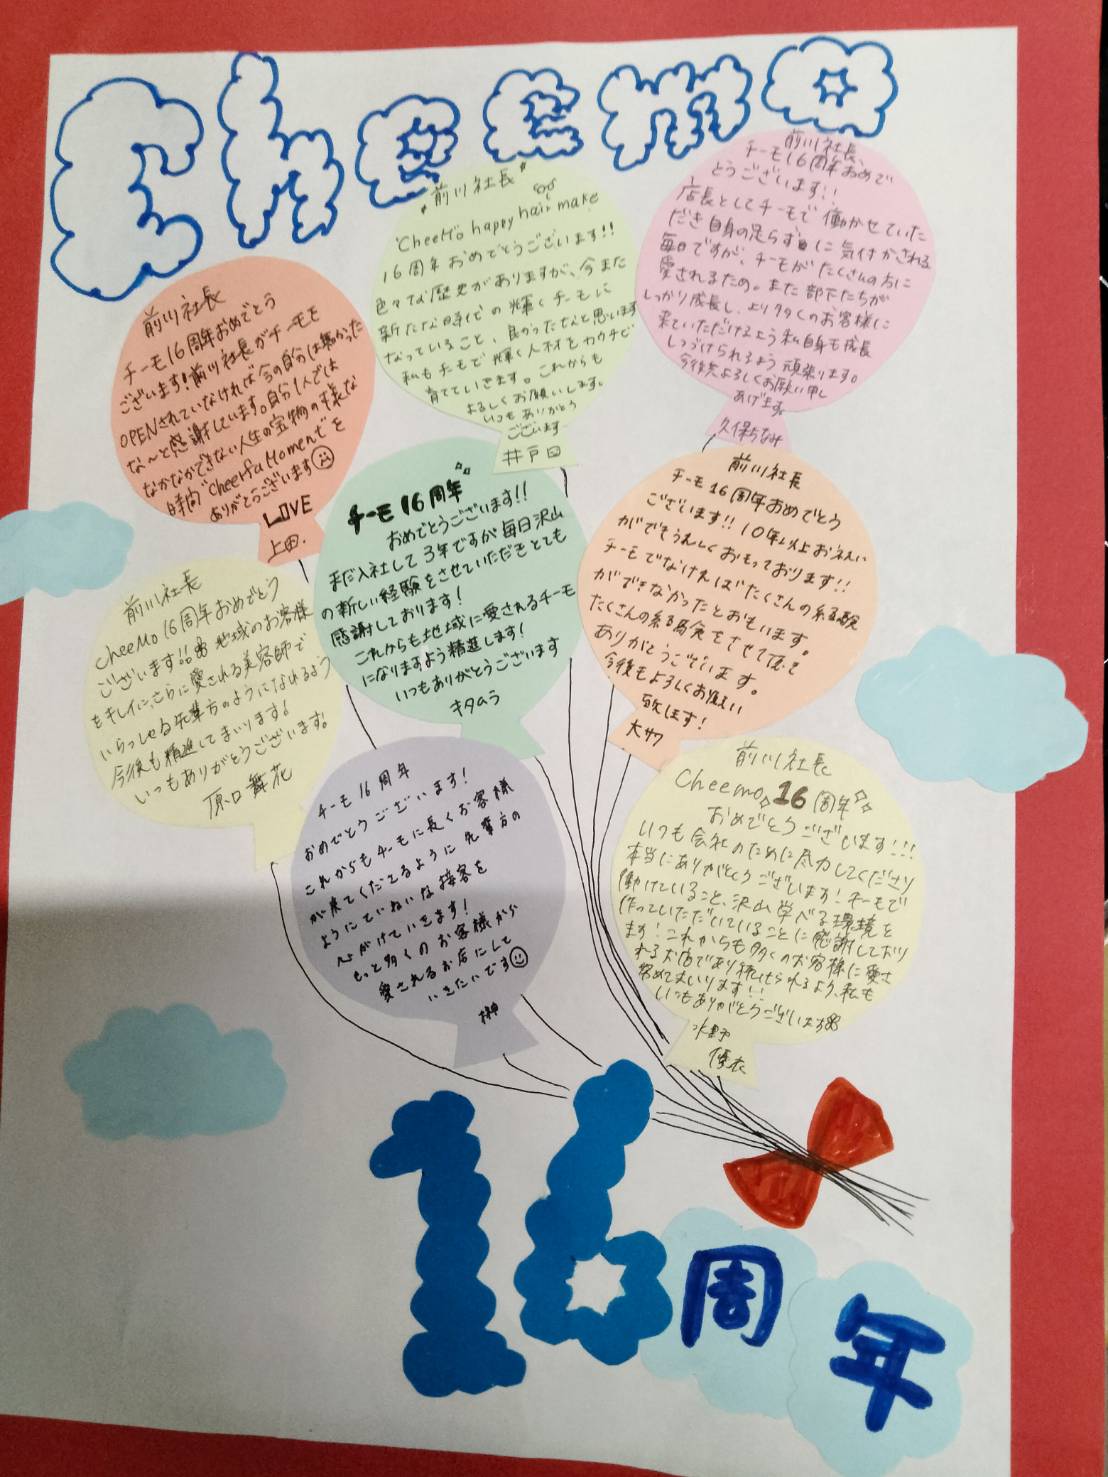 Cheemo
前川社長
チーモ16周年おめでとう
ございます!前川社長がチーモを
OPENされていなければ今の自分は無かった
な〜と感謝しています。自分1人では
なかなかできない人生の宝物の様な
時間"Cheerful Moment"を
ありがとうございます
LOVE
上田.
前川社長
CheeMo happy hair make
16周年おめでとうございます!!
色々な歴史がありますが、今また
新たな時代の輝くチーモに
なっていること、良かったなと思います
私もチーモで輝く人材をカウチで
育てていきます。これからも
よろしくお願いします。
いつもありがとう
ございます
井戸田
前川社長、
チーモ16周年おめで
とうございます!!
店長としてチーモで働かせていた
だき自身の足らず目に気付かされる
毎日ですが、チーモがたくさんの方に
愛されるため。また部下たちが
しっかり成長し、より多くのお客様に
来ていただけるよう私自身も成長
しつづけられるよう頑張ります。
今後共よろしくお願い申し
あげます。
久保ちなみ
チーモ16周年
おめでとうございます!!
まだ入社して3年ですが毎日沢山
の新しい経験をさせていただきとても
感謝しております!
これからも地域に愛されるチーモ
になりますよう精進します!
いつもありがとうございます
キタムラ
前川社長
チーモ16周年おめでとう
ございます!!10年以上お祝い
ができうれしくおもっております!!
チーモでなければたくさんの経験
ができなかったとおもいます。
たくさんの経験をさせて頂き
ありがとうございます。
今後もよろしくお願い
致します!
大サワ
前川社長
cheeMo 16周年おめでとう
ございます!!地域のお客様
をキレイに、さらに愛される美容師で
いらっしゃる先輩方のようになれるよう
今後も精進してまいります!
いつもありがとうございます。
原口舞花
チーモ16周年
おめでとうございます!
これからもチーモに長くお客様
が来てくださるように先輩方の
ようにていねいな接客を
心がけていきます!
もっと多くのお客様から
愛されるお店にして
いきたいです
榊
前川社長
Cheemo 16周年
おめでとうございます!!!
いつも会社のために尽力してくださり
本当にありがとうございます!チーモで
働けていること、沢山学べる環境を
作っていただいていることに感謝しており
ます!これからも多くのお客様に愛さ
れるお店であり続けられるよう、私も
努めてまいります!!
いつもありがとうございます
水野
優衣
16周年